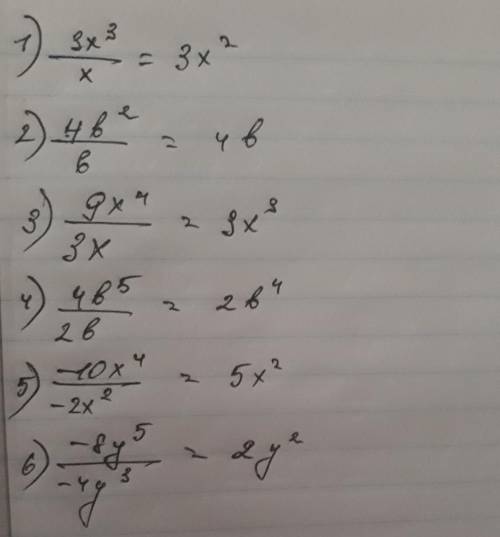 1) 3x³/x = 3x²
2) 4b²/b = 4b
3) 9x⁴/3x = 3x³
4) 4b⁵/2b = 2b⁴
5) -10x⁴/-2x² = 5x²
6) -8y⁵/-4y³ = 2y²